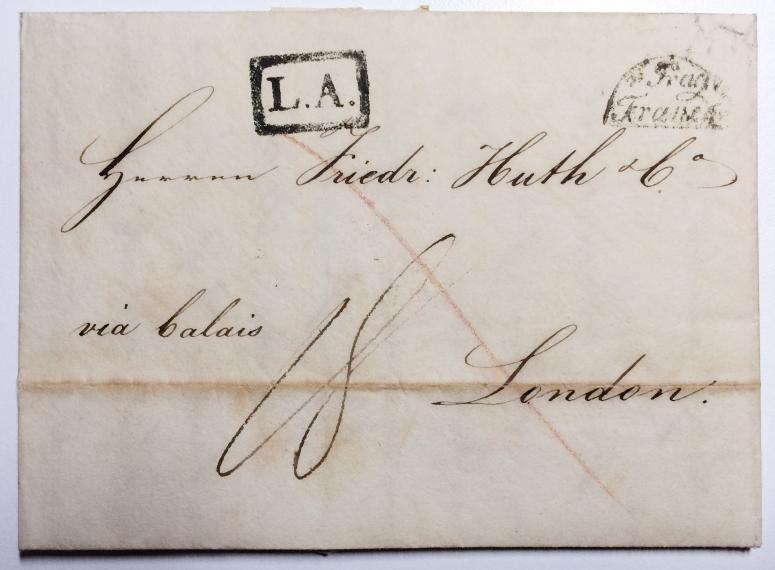 L.A.
Franco
Herren Friedr: Huth & Co
via Calais
18
London.